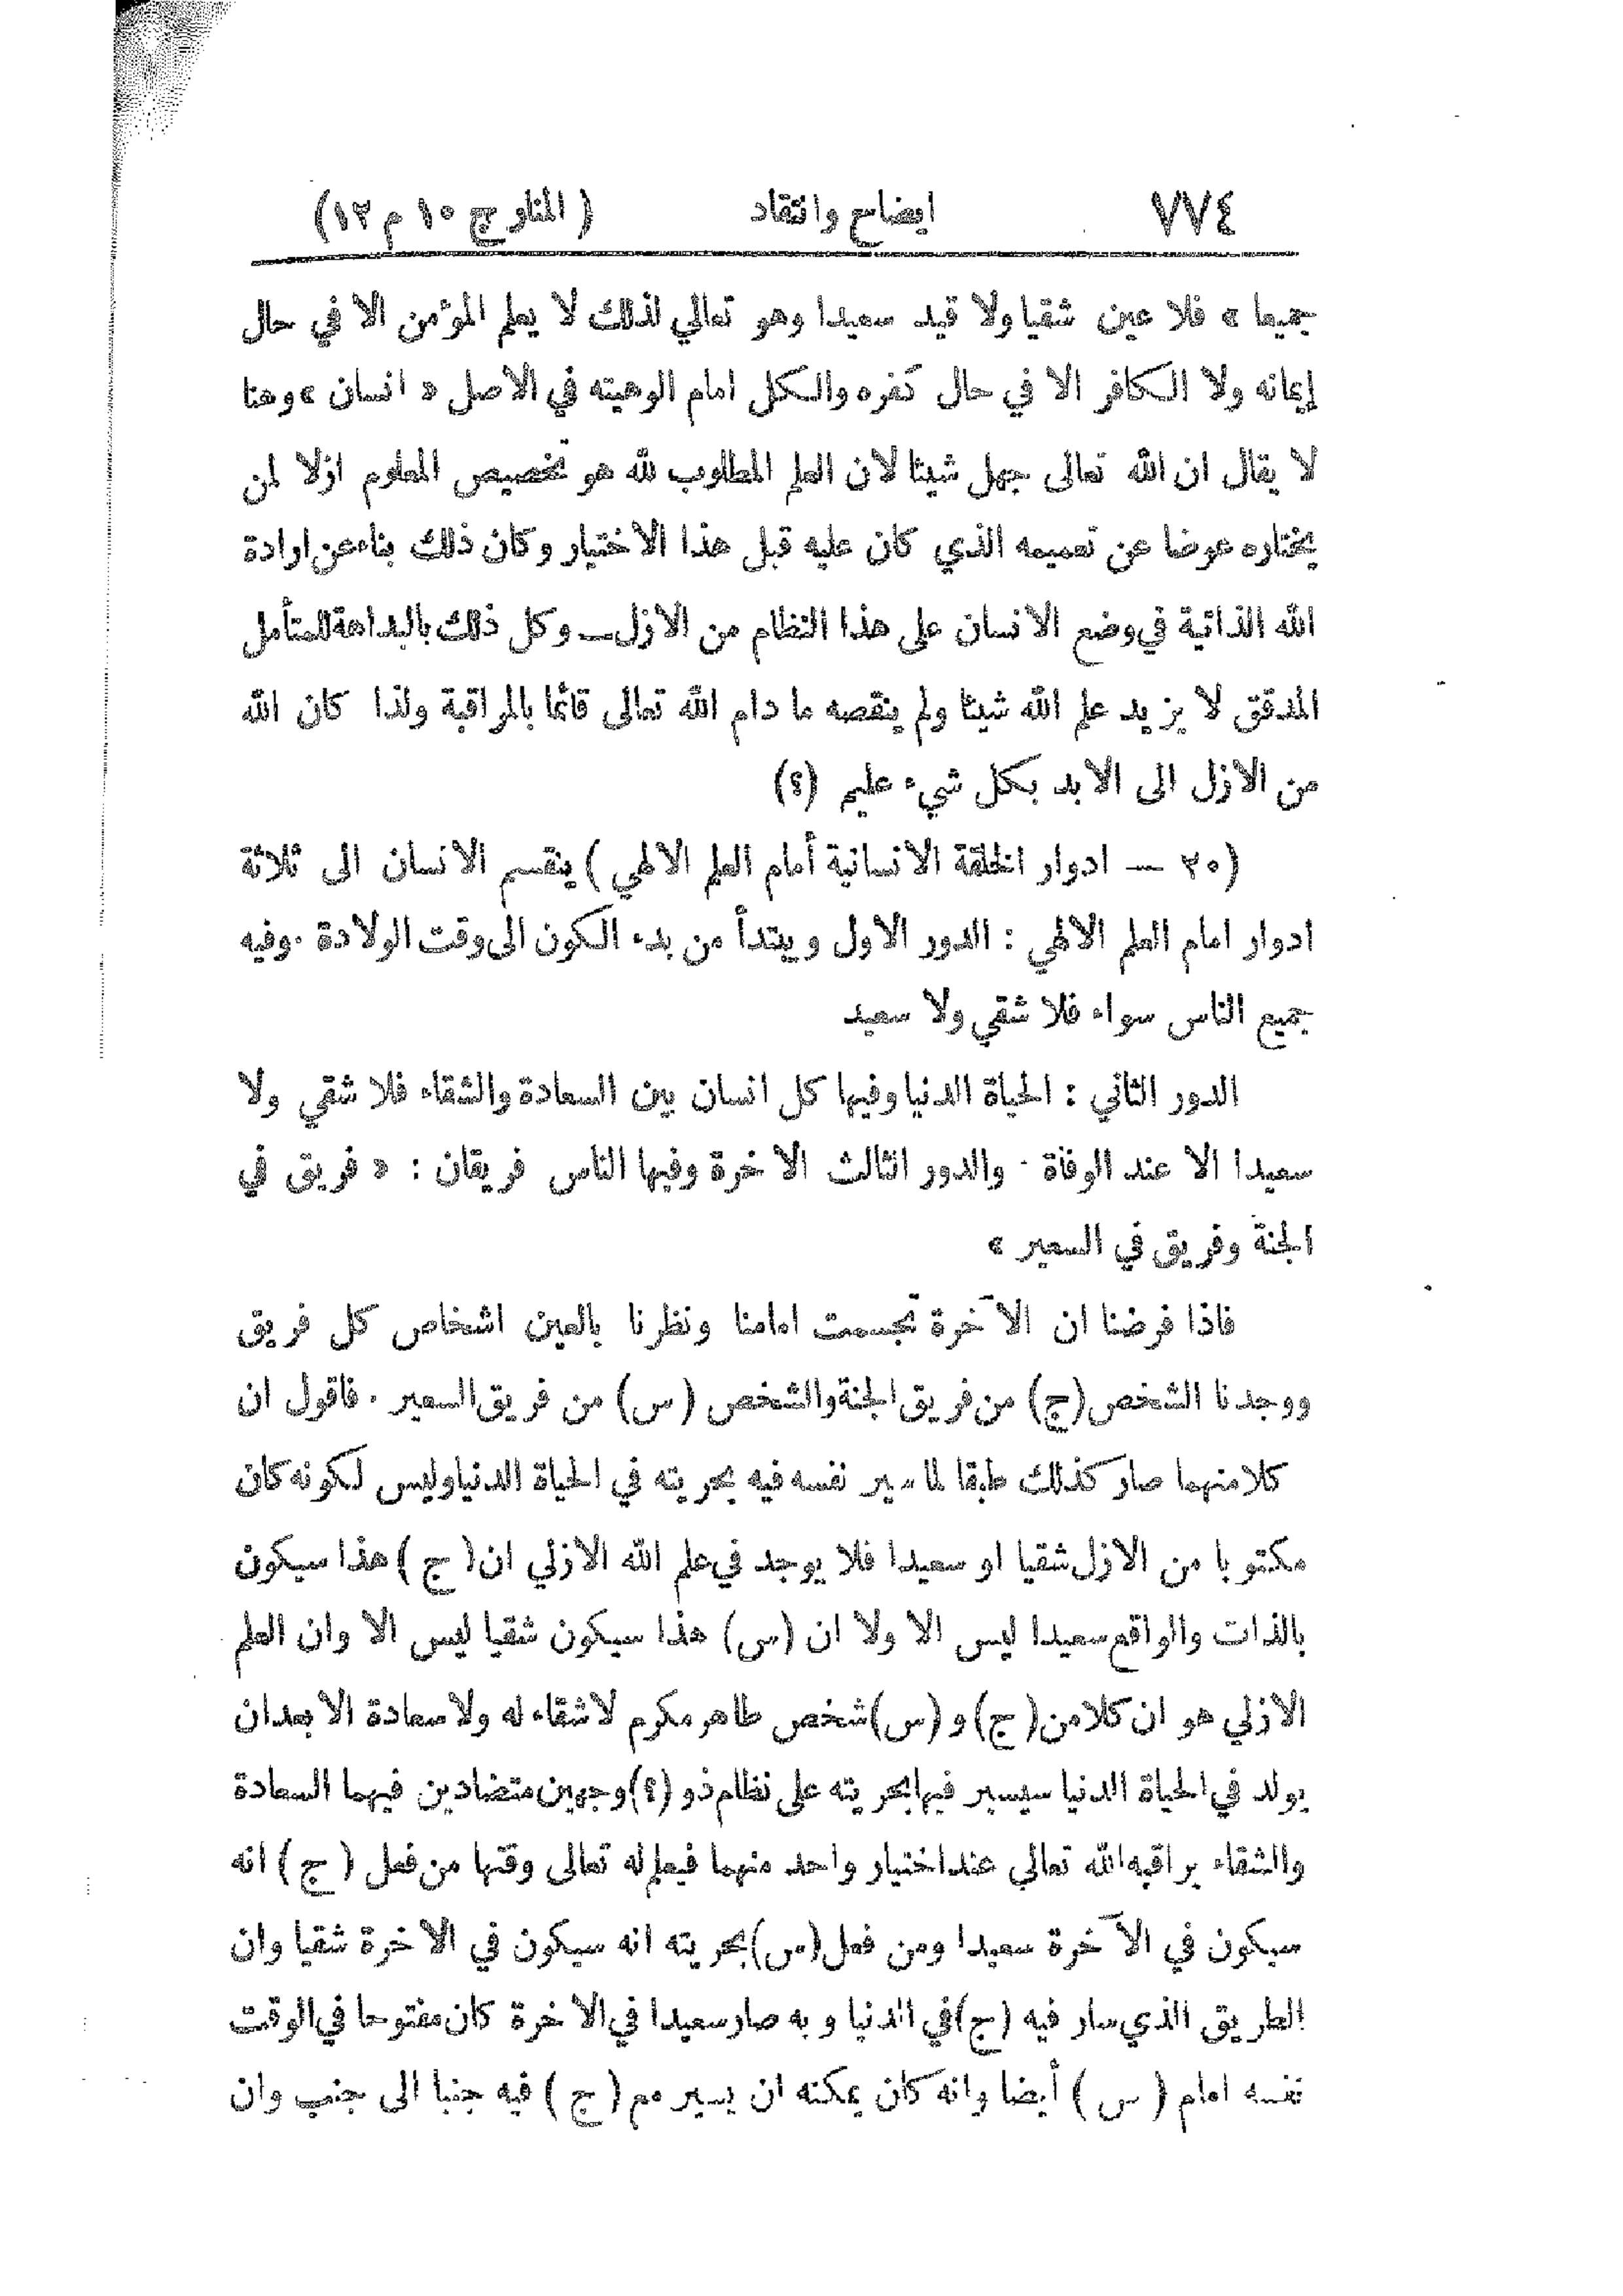 ٧٧٤ ايضاح وانتقاد ( المنار ج ١٠ م ١٢)
جميعا » فلا عين شقيا ولا قيد سعيدا وهو تعالي لذلك لا يعلم المؤمن الا في حال
إيمانه ولا الكافر الا في حال كفره والكل امام الوهيته في الاصل « انسان » وهنا
لا يقال ان الله تعالى جهل شيئا لان العلم المطلوب لله هو تخصيص المعلوم ازلا لمن
يختاره عوضا عن تعميمه الذي كان عليه قبل هذا الاختيار وكان ذلك بناء عن ارادة
الله الذاتية في وضع الانسان على هذا النظام من الازل — وكل ذلك بالبداهة للمتأمل
المدقق لا يزيد علم الله شيئا ولم ينقصه ما دام الله تعالى قائما بالمراقبة ولذا كان الله
من الازل الى الابد بكل شيء عليم (؟)
(٢٠ — ادوار الخلقة الانسانية أمام العلم الالهي ) ينقسم الانسان الى ثلاثة
ادوار امام العلم الالهي : الدور الاول ويبتدأ من بدء الكون الى وقت الولادة . وفيه
جميع الناس سواء فلا شقي ولا سعيد
الدور الثاني : الحياة الدنيا وفيها كل انسان بين السعادة والشقاء فلا شقي ولا
سعيدا الا عند الوفاة . والدور الثالث الاخرة وفيها الناس فريقان : « فريق في
الجنة وفريق في السعير »
فاذا فرضنا ان الآخرة تجسمت امامنا ونظرنا بالعين اشخاص كل فريق
ووجدنا الشخص (ج) من فريق الجنة والشخص ( س) من فريق السعير . فاقول ان
كلا منهما صار كذلك طبقا لما سير نفسه فيه بحريته في الحياة الدنيا وليس لكونه كان
مكتوبا من الازل شقيا او سعيدا فلا يوجد في علم الله الازلي ان ( ج ) هذا سيكون
بالذات والواقع سعيدا ليس الا ولا ان (س) هذا سيكون شقيا ليس الا وان العلم
الازلي هو ان كلا من ( ج) و (س) شخص طاهر مكرم لا شقاء له ولا سعادة الا بعد ان
يولد في الحياة الدنيا سيسير فيها بحريته على نظام ذو (؟) وجهين متضادين فيهما السعادة
والشقاء يراقبه الله تعالي عند اختيار واحد منهما فيعلم له تعالى وقتها من فعل ( ج ) انه
سيكون في الآخرة سعيدا ومن فعل (س) بحريته انه سيكون في الاخرة شقيا وان
الطريق الذي سار فيه (ج) في الدنيا وبه صار سعيدا في الاخرة كان مفتوحا في الوقت
نفسه امام ( س ) أيضا وانه كان يمكنه ان يسير مع ( ج ) فيه جنبا الى جنب وان